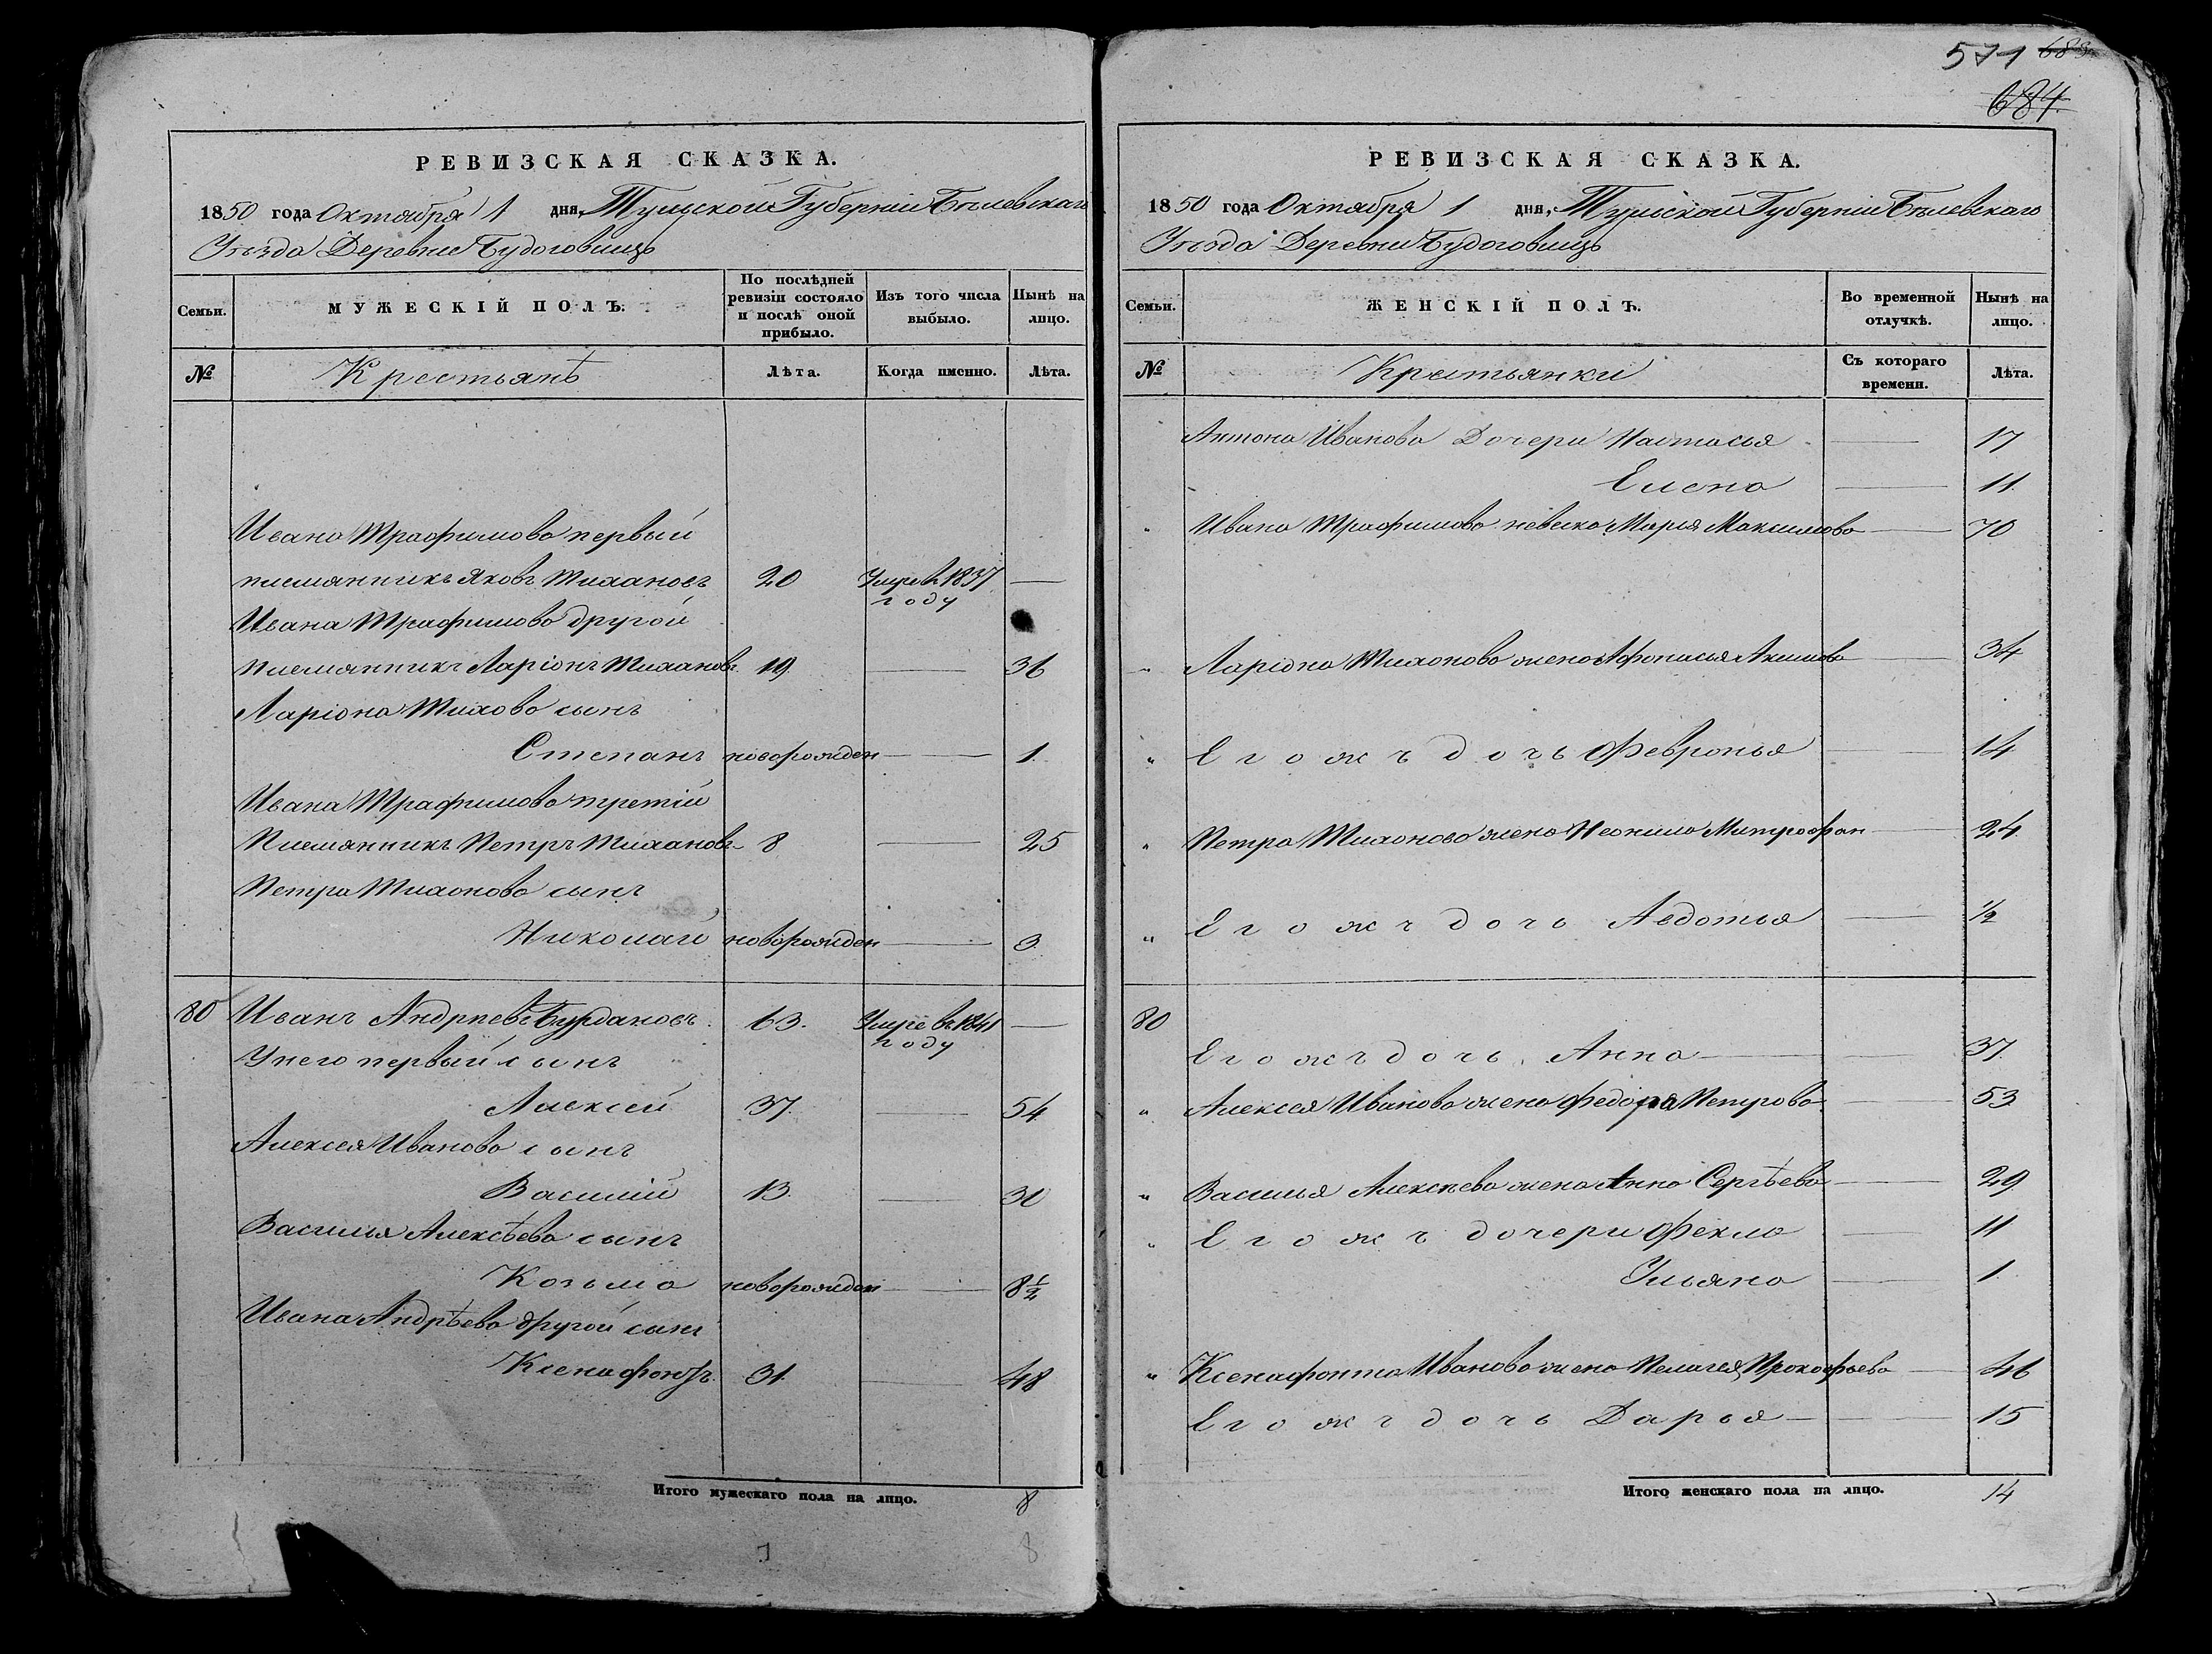 571 683
684
РЕВИЗСКАЯ СКАЗКА.
1850 года Октября 1 дня, Тульской Губерніи Бѣлевскаго
Уѣзда Деревни Будоговищъ
Семьи. МУЖЕСКІЙ ПОЛЪ. По послѣдней ревизіи состояло и послѣ оной прибыло. Изъ того числа выбыло. Нынѣ на лицо.
№ Крестьянѣ Лѣта. Когда именно. Лѣта.
Ивана Трафимова первый
племянникъ Яковъ Тихановъ 20 Умре в 1837 —
году
Ивана Трафимова другой
Племянникъ Ларіонъ Тихановъ 19. — 36
Ларіона Тихово сынъ
Степанъ новорожден — 1.
Ивана Трафимова третій
Племянникъ Петръ Тихановъ 8 — 25
Петра Тихоново сынъ
Николай новорожден — 3.
80 Иванъ Андриевъ Бурдаковъ. 63. Умре въ 1841 —
году
У него первый сынъ
Алексей 37. — 54
Алексея Иванова сынъ
Василий 13. — 30
Василья Алексѣева сынъ
Козьма новорожден — 8½
Ивана Андрѣева другой сынъ
Ксенафонтъ. 31. — 48
Итого мужескаго пола на лицо. 8
8
РЕВИЗСКАЯ СКАЗКА.
1850 года Октября 1 дня, Тульской Губерніи Бѣлевскаго
Уѣзда Деревни Будоговищъ
Семьи. ЖЕНСКІЙ ПОЛЪ. Во временной отлучкѣ. Нынѣ на лицо.
№ Крестьянки Съ котораго времени. Лѣта.
Антона Иванова Дочери Настасья — 17
Елена — 11.
Ивана Трафимова невска Марья Максимова — 70
Ларіона Тихонова жена Афонасья Акимова — 34
Его жъ дочь Февронья — 14
Петра Тихоново жена Неонила Митрофан — 24
Его жъ дочь Авдотья — ½
80
Его жъ дочь Анна — 37.
Алексея Иванова жена Федора Петрова — 53
Василья Алексѣева жена Анна Сергѣева — 29
Его жъ дочери Фекла — 11
Ульяна — 1.
Ксенафонта Иванова жена Пелагея Прокофьева — 46
Его жъ дочь Дарья — 15
Итого женскаго пола на лицо. 14